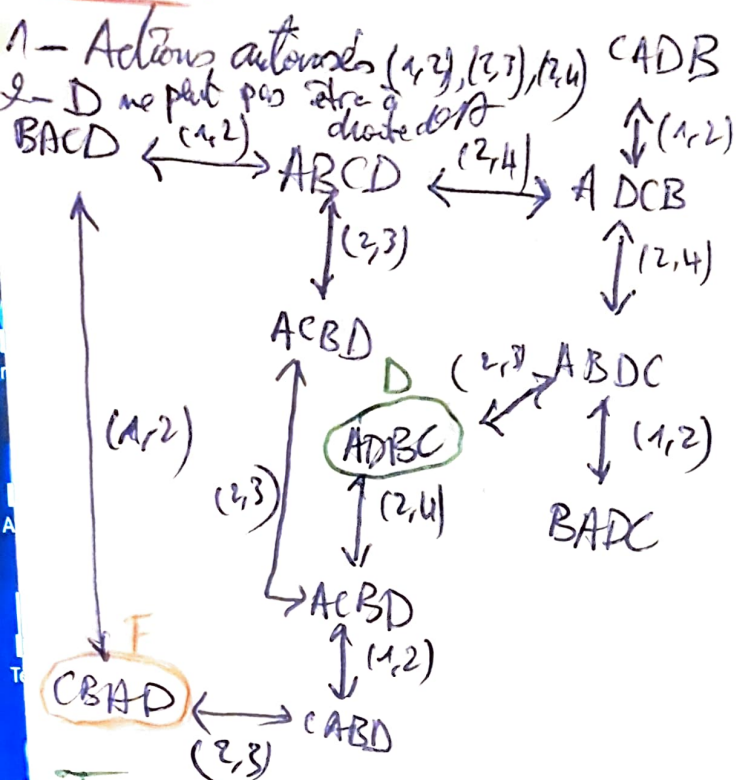 1- Actions autorisés (1,2), (2,3), (2,4) CADB
2- D ne peut pas être à
droite d'A
BACD (1,2) ABCD (2,4) ADCB (1,2)
(2,3) (2,4)
ACBD D (2,3) ABDC
(1,2) ADBC (1,2)
(2,3) (2,4) BADC
ACBD
F (1,2)
CBAD CABD
(2,3)